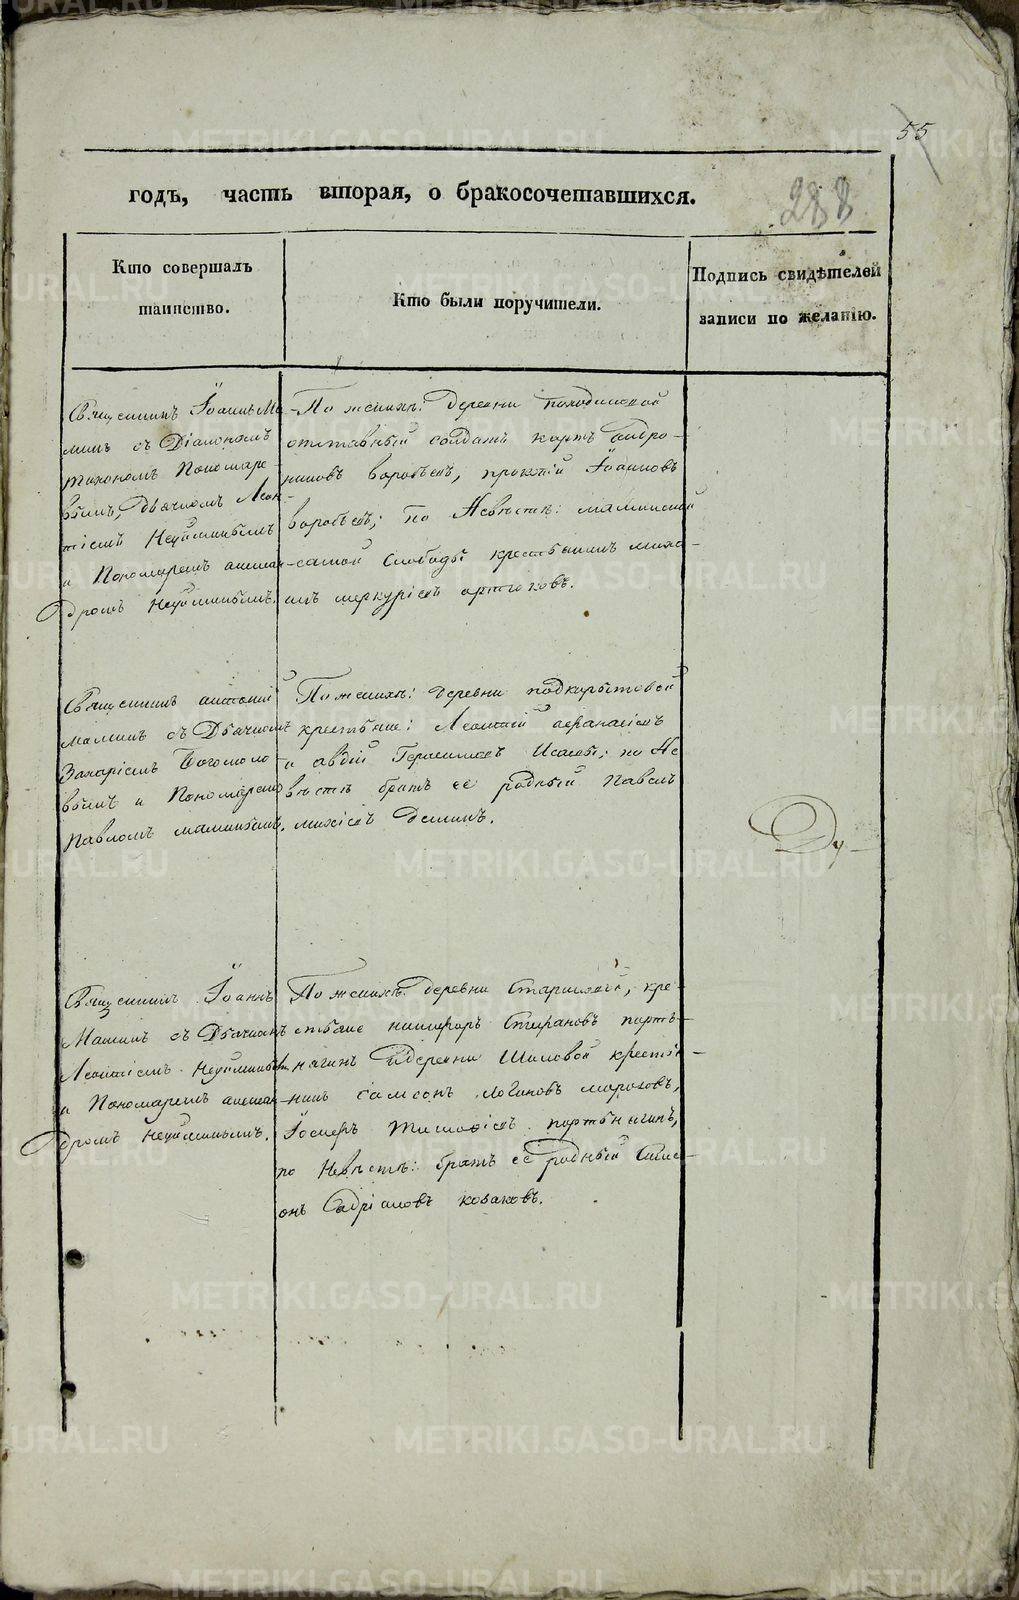 55
годъ, часть вторая, о бракосочетавшихся.
288
Кто совершалъ
таинство.
Кто были поручители.
Подпись свидѣтелей
записи по желанію.
Священникъ Іоаннъ Ма-
минъ съ Діакономъ
Тихономъ Пономаре-
вымъ, Дьячкомъ Леон-
тіемъ Неуйминымъ
и Пономаремъ алексан-
дромъ Неуйминымъ.
По женихѣ: Деревни
отставный солдатъ андро-
никовъ воробьевъ, Іоанновъ
воробьевъ; По Невѣстѣ: маминской
самой Слободы крестьянинъ миха-
илъ меркуріевъ
Священникъ антоній
маминъ съ Дьячкомъ
Захаріемъ Богомоло-
вымъ и Пономаремъ
Павломъ маминымъ.
По женихѣ: Деревни подкорытовой
крестьяне: Леонтій афанасіевъ
и авдій Герасимовъ Исаевы; по Не
вѣстѣ братъ ее родный Павелъ
Деминъ.
Священникъ Іоаннъ
Маминъ съ Дьячкомъ
Леонтіемъ Неуйминымъ
и Пономаремъ алексан-
дромъ Неуйминымъ.
По женихѣ: Деревни кре-
стьяне никифоръ Стефановъ порть-
нягинъ Деревни Шиловой крестья-
нинъ самсонъ Логиновъ морозовъ,
Іосифъ портьнягинъ,
по Невѣстѣ: братъ ее родный Сими-
онъ Садріановъ козаковъ.
Ду-
METRIKI.GASO-URAL.RU